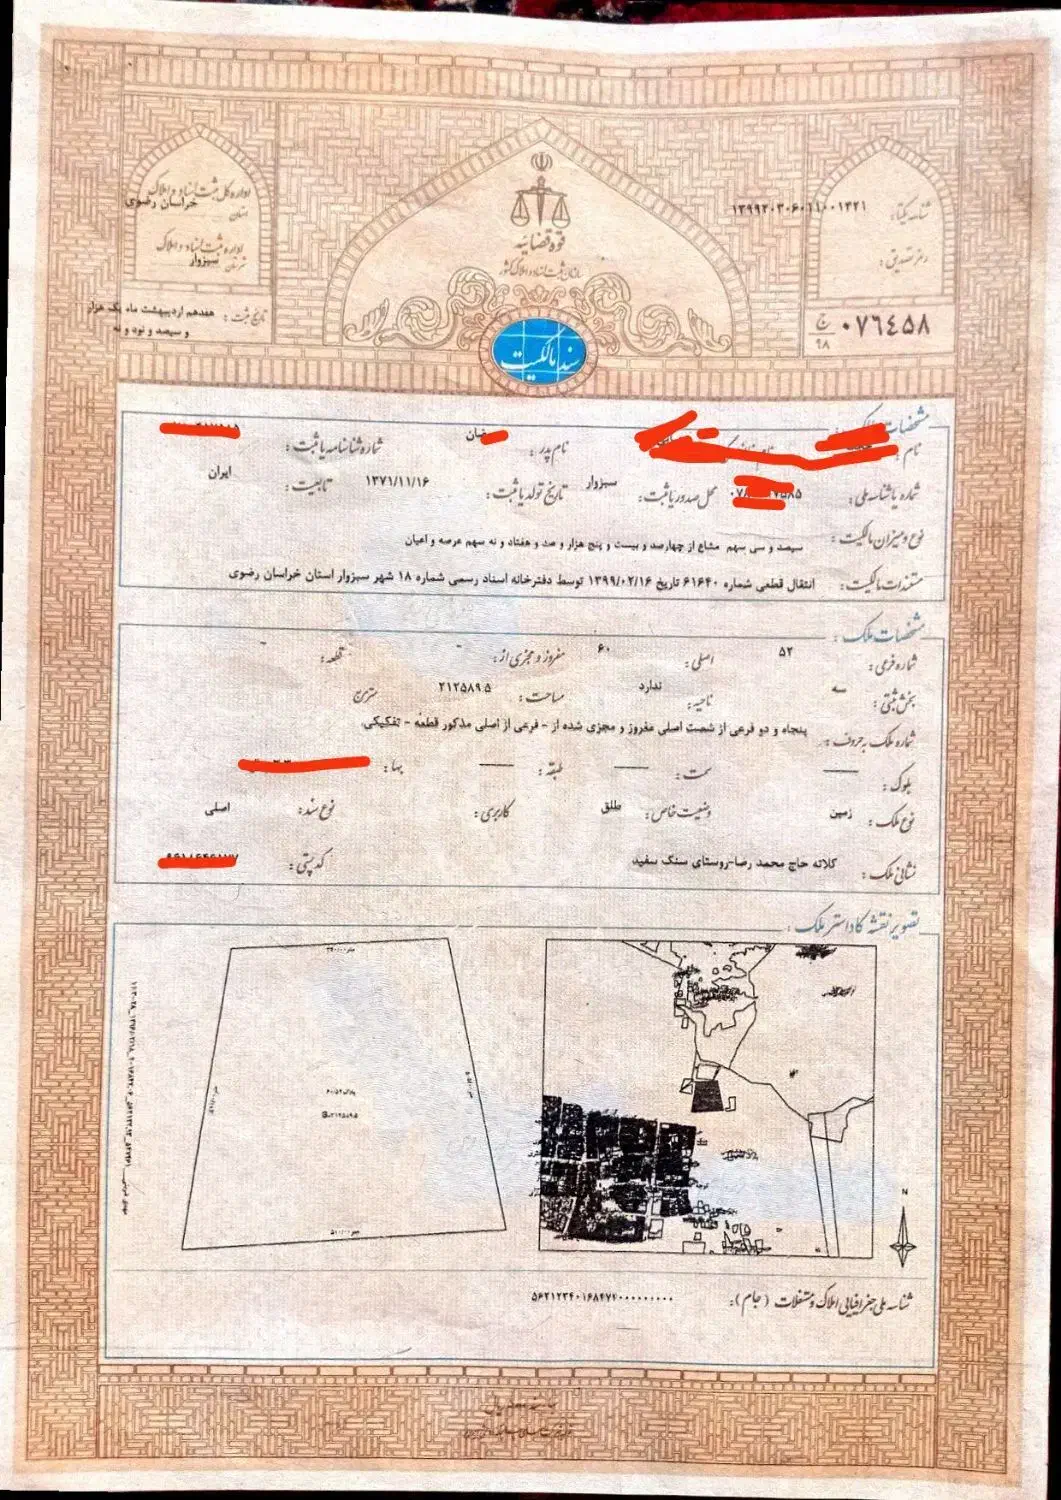 قوه قضائیه
سازمان ثبت اسناد و املاک کشور
سند مالکیت
شناسه یکتا: ۱۳۹۹۲۰۳۰۶۰۱۱۰۰۱۳۲۱
رمز تصدیق:
۰۷۶۴۵۸ ج ۹۸
اداره کل ثبت اسناد و املاک
استان خراسان رضوی
اداره ثبت اسناد و املاک
شهرستان سبزوار
تاریخ ثبت: هفدهم اردیبهشت ماه یک هزار
و سیصد و نود و نه
مشخصات
نام نام پدر: شماره شناسنامه یا ثبت:
شماره یا شناسه ملی: محل صدور یا ثبت: سبزوار تاریخ تولد یا ثبت: ۱۳۷۱/۱۱/۱۶ تابعیت: ایران
نوع و میزان مالکیت: سیصد و سی سهم مشاع از چهارصد و بیست و پنج هزار و صد و هفتاد و نه سهم عرصه و اعیان
مستندات مالکیت: انتقال قطعی شماره ۶۱۶۴۰ تاریخ ۱۳۹۹/۰۲/۱۶ توسط دفترخانه اسناد رسمی شماره ۱۸ شهر سبزوار استان خراسان رضوی
مشخصات ملک:
شماره فرعی: ۵۲ اصلی: ۶۰ مفروز و مجزی از: - قطعه: -
بخش ثبتی: سه ناحیه: ندارد مساحت: ۲۱۲۵۸۹.۵ مترمربع
شماره ملک به حروف: پنجاه و دو فرعی از شصت اصلی مفروز و مجزی شده از - فرعی از اصلی مذکور قطعه - تفکیکی
بلوک: سمت: طبقه: بها:
نوع ملک: زمین وضعیت خاص: طلق کاربری: نوع سند: اصلی
نشانی ملک: کلاته حاج محمد رضا-روستای سنگ سفید کد پستی:
تصویر نقشه کاداستر ملک:
پلاک ۶۰/۵۲
S=۲۱۲۵۸۹.۵
N
شناسه ملی جغرافیایی املاک و مستغلات (جام): ۵۶۲۱۲۳۴۰۱۶۸۴۷۲۰۰۰۰۰۰۰۰۰